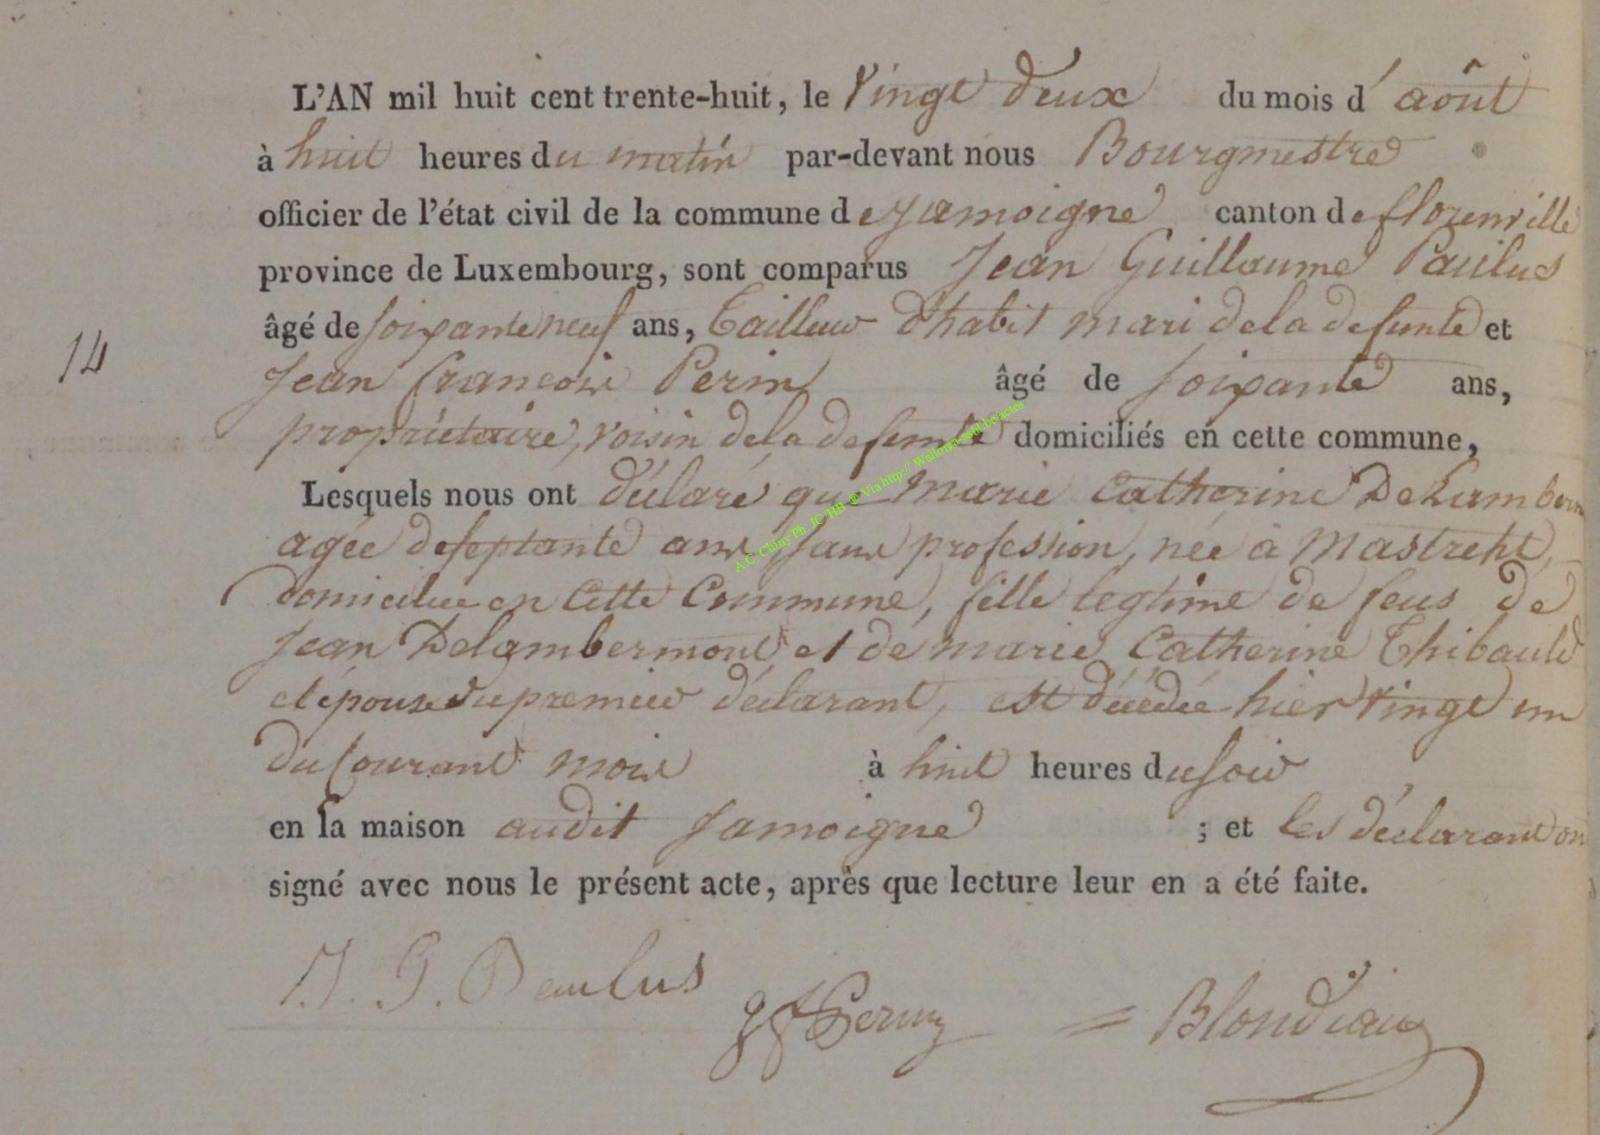 L'AN mil huit cent trente-huit, le Vingt deux du mois d' août
à huit heures du matin par-devant nous Bourgmestre
officier de l'état civil de la commune de jamoigne canton de florenville
province de Luxembourg, sont comparus Jean Guillaume Paulus
âgé de soixante neuf ans, Tailleur d'habit mari de la defunte et
14
Jean françois Perin âgé de soixante ans,
propriétaire, voisin de la defunte domiciliés en cette commune,
Lesquels nous ont déclaré que Marie Catherine DeLamberm
agée de septante ans, sans profession, née à Mastreht,
domiciliée en Cette Commune, fille legtime de feus de
Jean Delambermont et de marie Catherine Thibauld
et épouse du premier déclarant, est décédée hier vingt un
du Courant mois à huit heures du soir
en la maison audit Jamoigne ; et les déclarant on
signé avec nous le présent acte, après que lecture leur en a été faite.
J. G. Paulus
J f Perin = Blondiau
A.C. Chiny Ph. JC HB © Via http:// Wallonica.be/actes